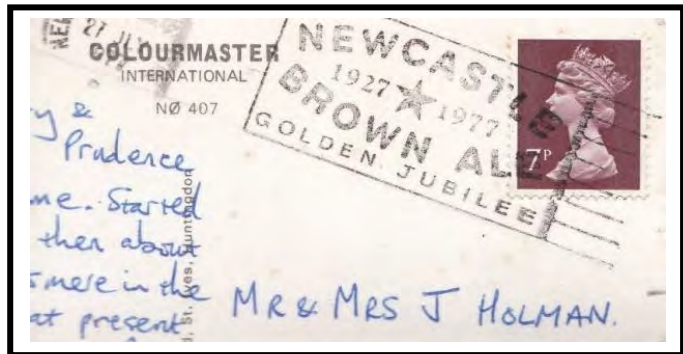 27 JU
COLOURMASTER
INTERNATIONAL
NØ 407
NEWCASTLE
1927 ★ 1977
BROWN ALE
GOLDEN JUBILEE
7P
y &
Prudence
me. Started
then about
smere in the
at present
St. Ives, Huntingdon
MR & MRS J HOLMAN.